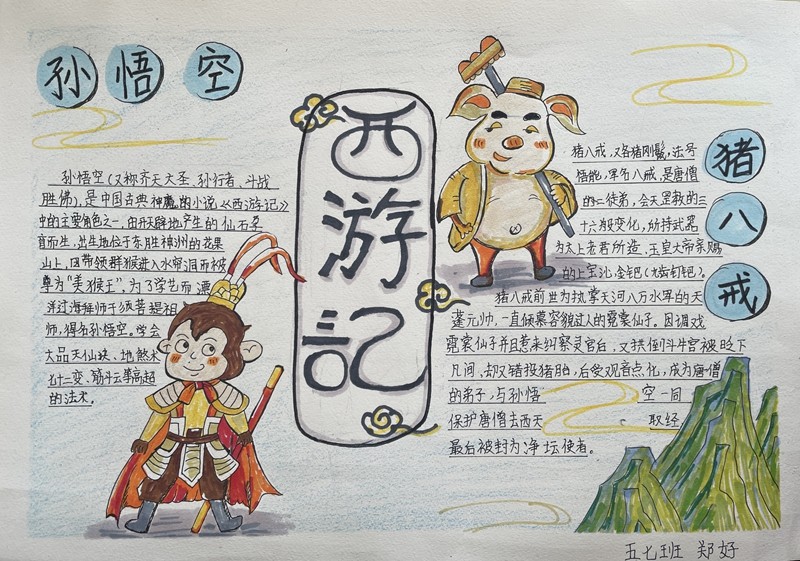 孙悟空
孙悟空(又称齐天大圣、孙行者、斗战
胜佛),是中国古典神魔的小说《西游记》
中的主要角色之一,由开天辟地产生的仙石孕
育而生,出生地位于东胜神洲的花果
山上,因带领群猴进入水帘洞而被
尊为“美猴王”,为了学艺而漂
洋过海拜师于须菩提祖
师,得名孙悟空。学会
大品天仙诀、地煞术
七十二变、筋斗云等高超
的法术。
西游記
猪八戒
猪八戒,又名猪刚鬣,法号
悟能,浑名八戒,是唐僧
的二徒弟,会天罡数的三
十六般变化,所持武器
为太上老君所造、玉皇大帝亲赐
的上宝沁金钯(九齿钉钯)。
猪八戒前世为执掌天河八万水军的天
蓬元帅,一直倾慕容貌过人的霓裳仙子。因调戏
霓裳仙子并且惹来纠察灵官后,又拱倒斗牛宫被贬下
凡间,却又错投猪胎,后受观音点化,成为唐僧
的弟子,与孙悟空一同
保护唐僧去西天取经,
最后被封为净坛使者。
五七班 郑好